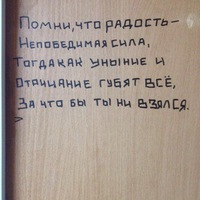 Помни, что радость –
Непобедимая сила,
Тогда как уныние и
Отчаяние губят всё,
За что бы ты ни взялся.
>